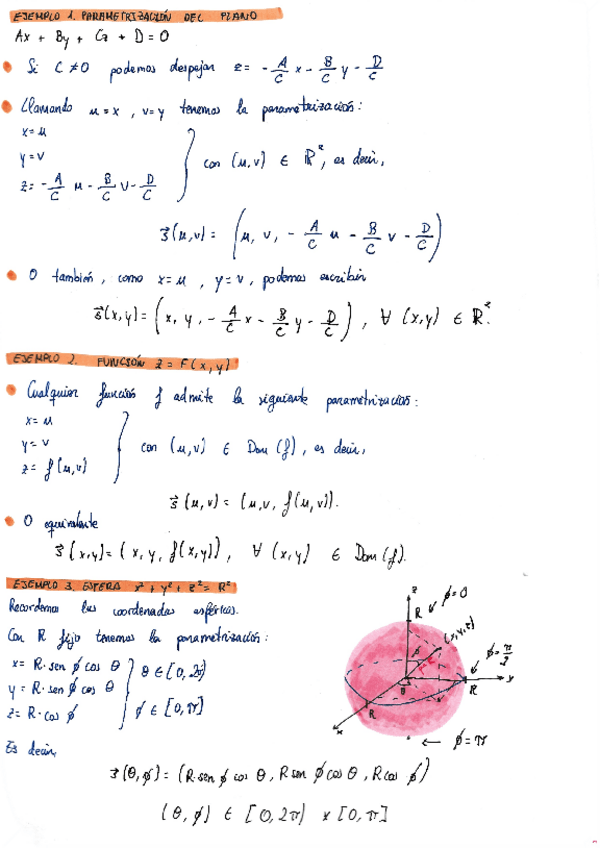 EJEMPLO 1. PARAMETRIZACIÓN DEL PLANO
Ax + By + Cz + D = 0
• Si C ≠ 0 podemos despejar z = - A/C x - B/C y - D/C
• Llamando u = x , v = y tenemos la parametrización:
x = u
y = v
z = - A/C u - B/C v - D/C } con (u,v) ∈ ℝ², es decir,
s⃗(u,v) = (u, v, - A/C u - B/C v - D/C)
• O también, como x = u , y = v, podemos escribir
s⃗(x,y) = (x, y, - A/C x - B/C y - D/C) , ∀ (x,y) ∈ ℝ².
EJEMPLO 2. FUNCIÓN z = F(x,y)
• Cualquier función f admite la siguiente parametrización:
x = u
y = v
z = f(u,v) } con (u,v) ∈ Dom(f), es decir,
s⃗(u,v) = (u,v, f(u,v)).
• O equivalente
s⃗(x,y) = (x, y, f(x,y)), ∀ (x,y) ∈ Dom(f).
EJEMPLO 3. ESFERA x² + y² + z² = R²
Recordemos las coordenadas esféricas.
Con R fijo tenemos la parametrización:
x = R·sen ϕ cos θ
y = R·sen ϕ cos θ
z = R·cos ϕ } θ ∈ [0, 2π)
ϕ ∈ [0, π]
z
R
ϕ = 0
(x,y,z)
ϕ
r
ϕ = π/2
θ
R
y
R
x
← ϕ = π
Es decir,
s⃗(θ,ϕ) = (R sen ϕ cos θ, R sen ϕ cos θ, R cos ϕ)
(θ, ϕ) ∈ [0, 2π) × [0, π]